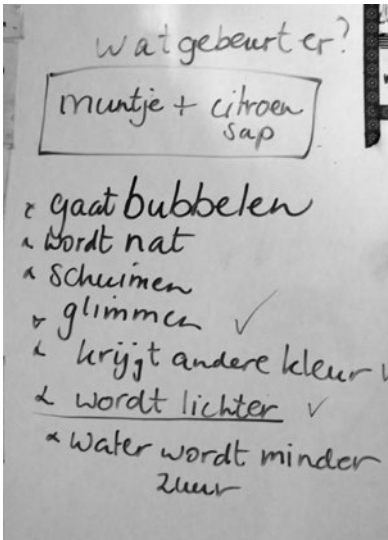 wat gebeurt er?
muntje + citroen
sap
gaat bubbelen
wordt nat
schuimen
glimmen ✓
krijgt andere kleur ✓
wordt lichter ✓
water wordt minder
zuur